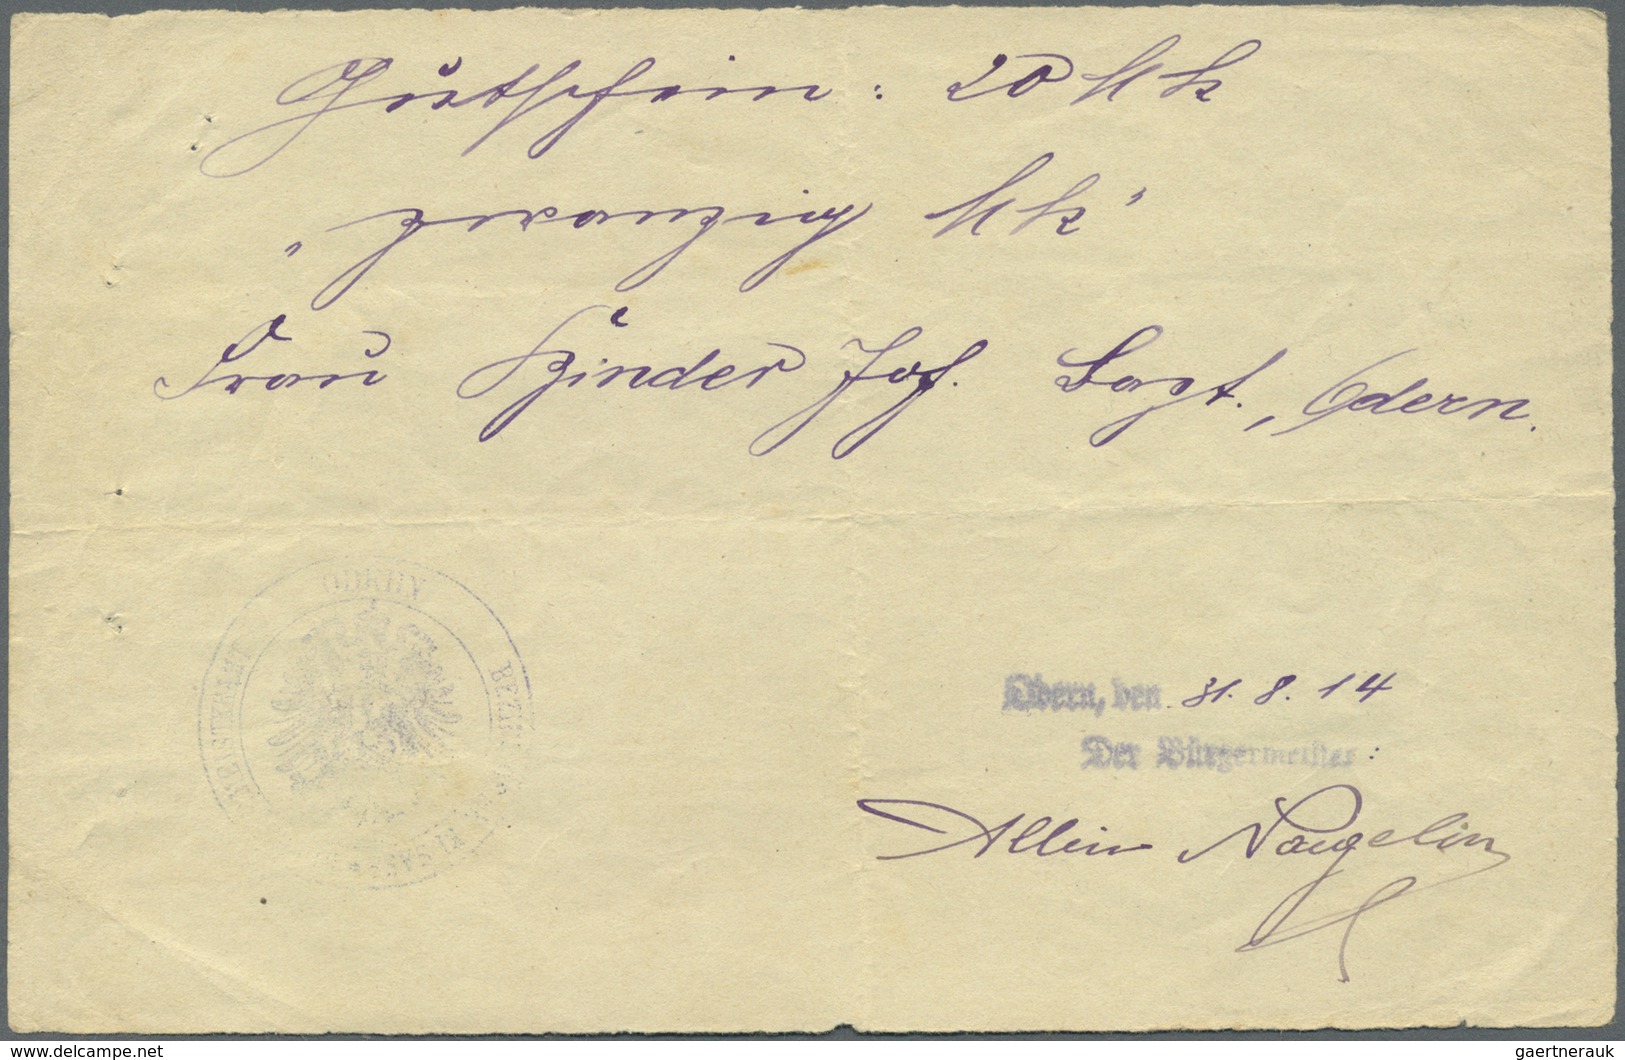 Gutschein: 20 Mk
"zwanzig Mk"
Frau Jos. , Odern.
ODERN
BEZIRK
ELSASS
Odern, den 31. 8. 14
Der Bürgermeister:
Naegelin
delcampe.net
gaertnerauk